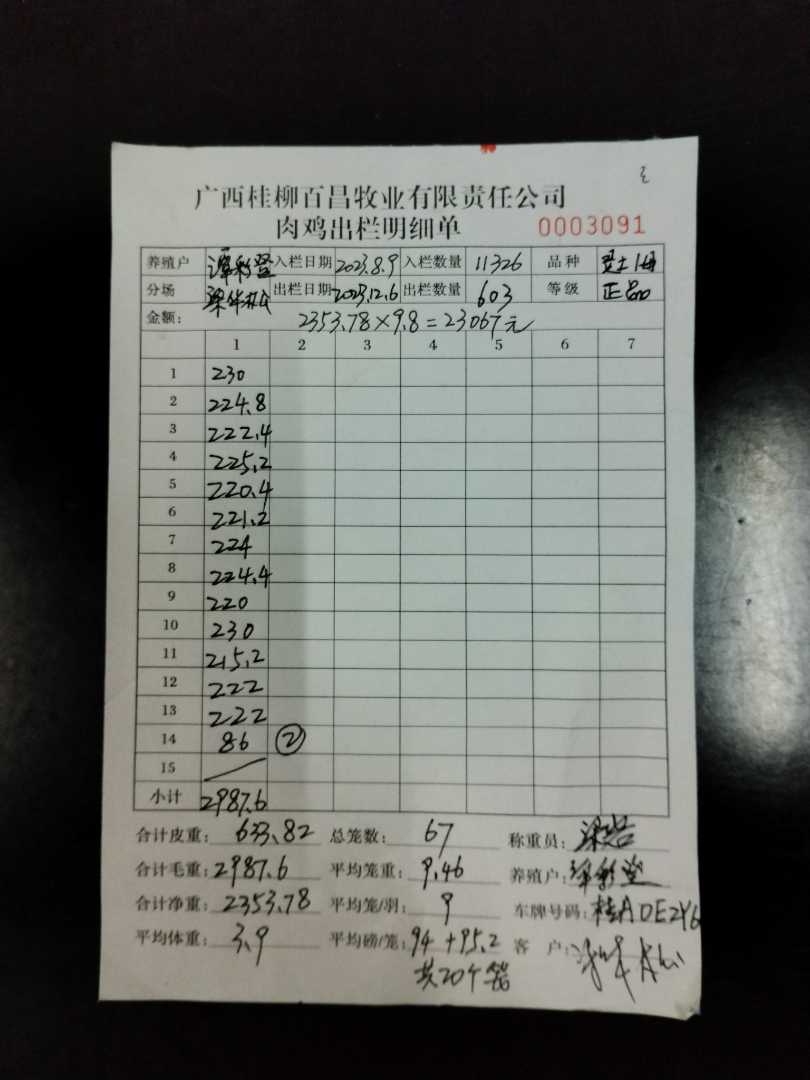 广西桂柳百昌牧业有限责任公司
肉鸡出栏明细单 0003091
养殖户 入栏日期 2023.8.9 入栏数量 11326 品种
分场 出栏日期 2023.12.6 出栏数量 603 等级 正品
金额: 2353.78×9.8=23067元
1 2 3 4 5 6 7
1 230
2 224.8
3 222.4
4 225.2
5 220.4
6 221.2
7 224
8 224.4
9 220
10 230
11 215.2
12 222
13 222
14 86 ②
15
小计 2987.6
合计皮重: 633.82 总笼数: 67 称重员:
合计毛重: 2987.6 平均笼重: 9.46 养殖户:
合计净重: 2353.78 平均笼/羽: 9 车牌号码: 桂A0E2Y6
平均体重: 3.9 平均磅/笼: 94+95.2 客 户:
共20个